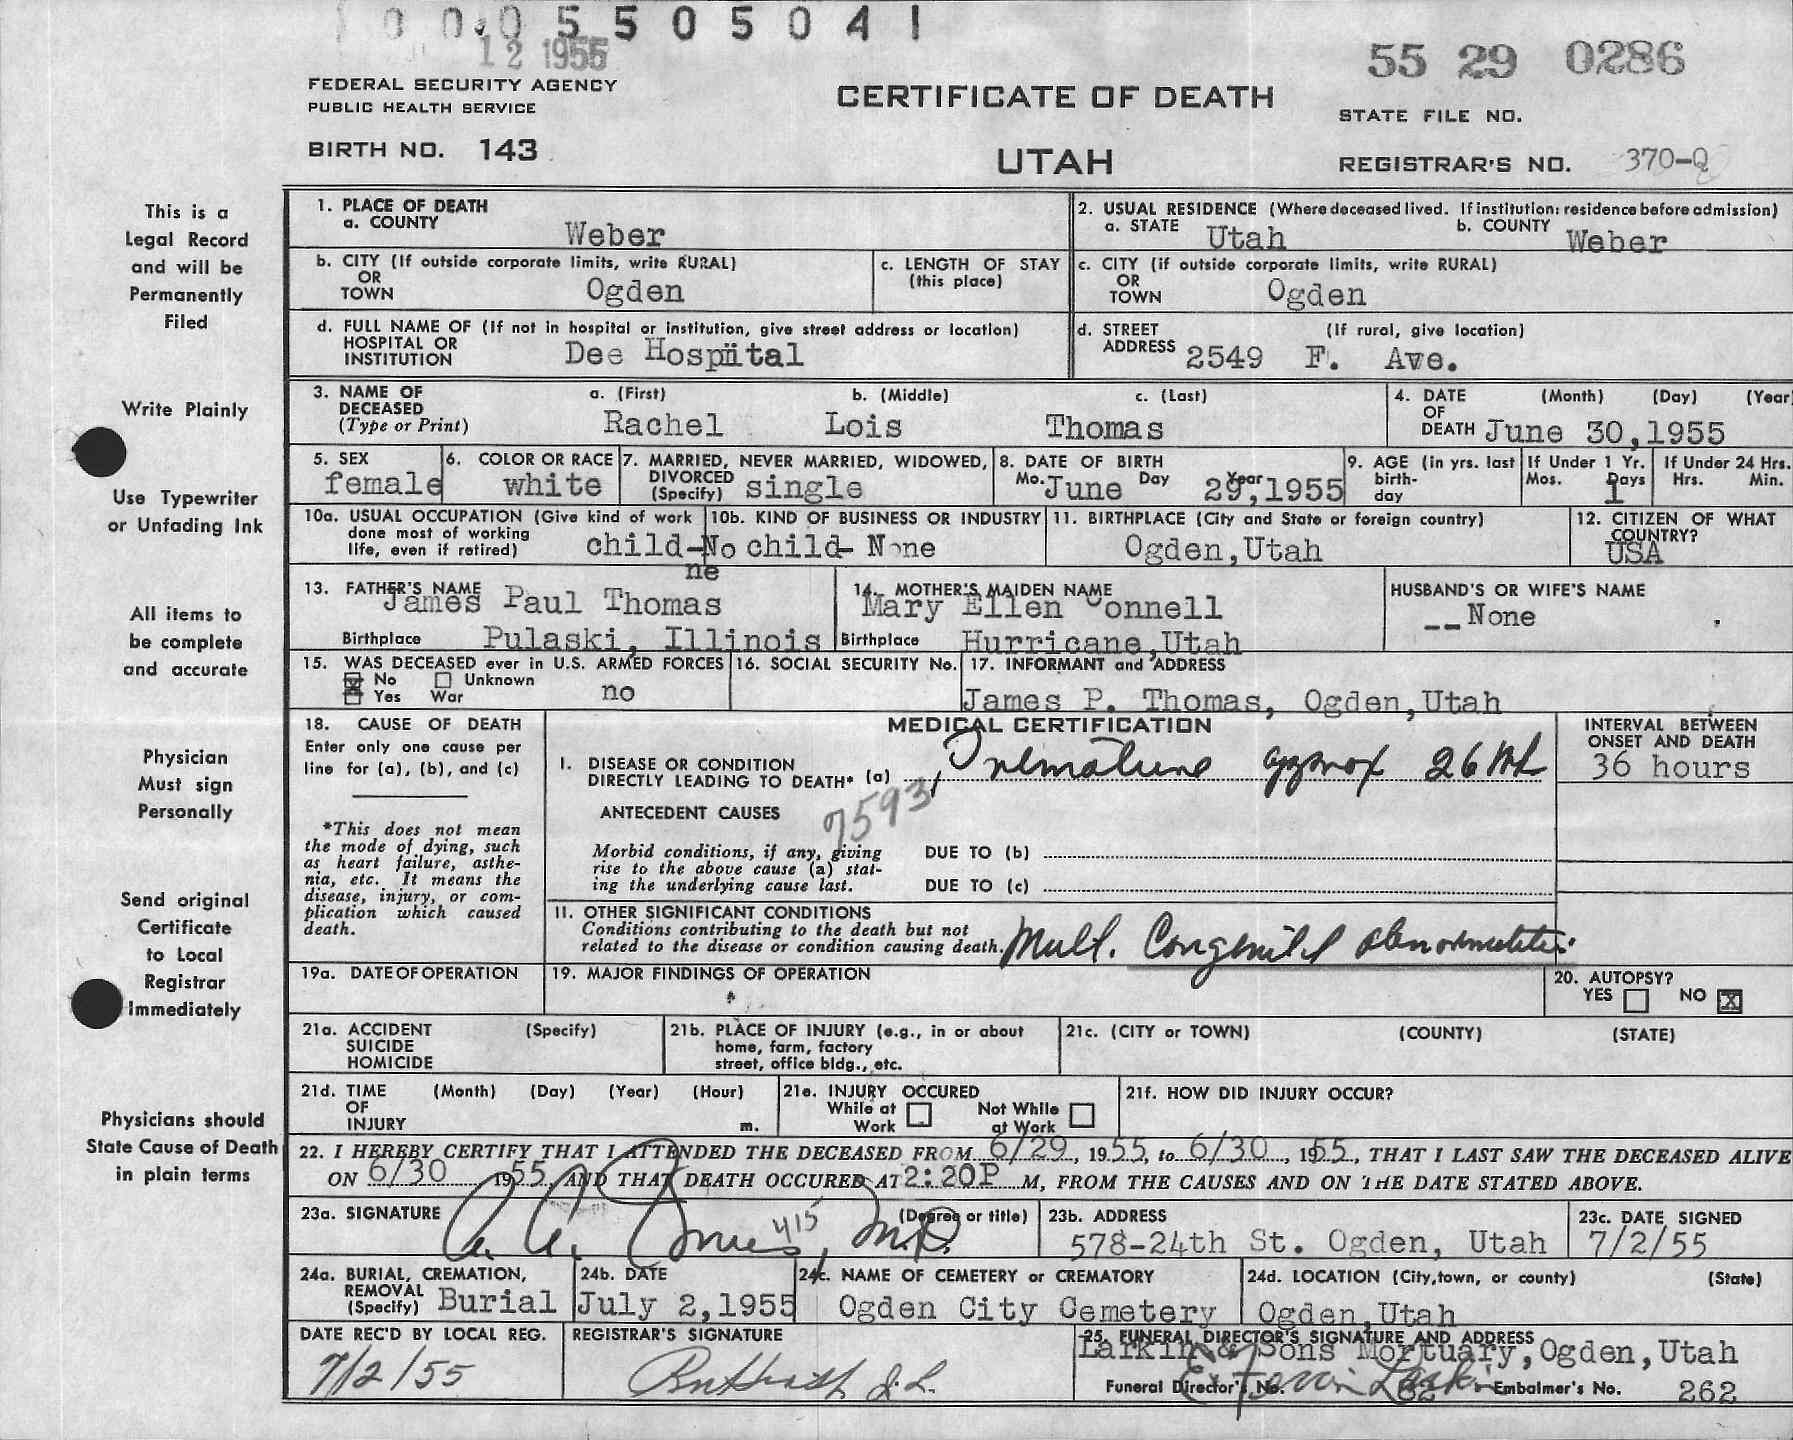 0005505041
12 1955
55 29 0286
FEDERAL SECURITY AGENCY
PUBLIC HEALTH SERVICE
CERTIFICATE OF DEATH
STATE FILE NO.
BIRTH NO. 143
UTAH
REGISTRAR'S NO. 370-Q
This is a
Legal Record
and will be
Permanently
Filed
Write Plainly
Use Typewriter
or Unfading Ink
All items to
be complete
and accurate
Physician
Must sign
Personally
Send original
Certificate
to Local
Registrar
Immediately
Physicians should
State Cause of Death
in plain terms
1. PLACE OF DEATH
a. COUNTY Weber
2. USUAL RESIDENCE (Where deceased lived. If institution: residence before admission)
a. STATE Utah b. COUNTY Weber
b. CITY (If outside corporate limits, write RURAL)
OR
TOWN Ogden
c. LENGTH OF STAY
(this place)
c. CITY (if outside corporate limits, write RURAL)
OR
TOWN Ogden
d. FULL NAME OF (If not in hospital or institution, give street address or location)
HOSPITAL OR
INSTITUTION Dee Hospiital
d. STREET (If rural, give location)
ADDRESS 2549 F. Ave.
3. NAME OF a. (First) b. (Middle) c. (Last)
DECEASED
(Type or Print) Rachel Lois Thomas
4. DATE (Month) (Day) (Year
OF
DEATH June 30,1955
5. SEX
female
6. COLOR OR RACE
white
7. MARRIED, NEVER MARRIED, WIDOWED,
DIVORCED
(Specify) single
8. DATE OF BIRTH
Mo. June Day 29, Year 1955
9. AGE (in yrs. last
birth-
day
If Under 1 Yr.
Mos. Days
1
If Under 24 Hrs.
Hrs. Min.
10a. USUAL OCCUPATION (Give kind of work
done most of working
life, even if retired) child-No
ne
10b. KIND OF BUSINESS OR INDUSTRY
child- None
11. BIRTHPLACE (City and State or foreign country)
Ogden,Utah
12. CITIZEN OF WHAT
COUNTRY?
USA
13. FATHER'S NAME
James Paul Thomas
Birthplace Pulaski, Illinois
14. MOTHER'S MAIDEN NAME
Mary Ellen Connell
Birthplace Hurricane,Utah
HUSBAND'S OR WIFE'S NAME
--None
15. WAS DECEASED ever in U.S. ARMED FORCES
No Unknown
Yes War no
16. SOCIAL SECURITY No.
17. INFORMANT and ADDRESS
James P. Thomas, Ogden,Utah
18. CAUSE OF DEATH
Enter only one cause per
line for (a), (b), and (c)
*This does not mean
the mode of dying, such
as heart failure, asthe-
nia, etc. It means the
disease, injury, or com-
plication which caused
death.
MEDICAL CERTIFICATION
INTERVAL BETWEEN
ONSET AND DEATH
36 hours
I. DISEASE OR CONDITION
DIRECTLY LEADING TO DEATH* (a) Premature approx 26 wk
7593
ANTECEDENT CAUSES
Morbid conditions, if any, giving
rise to the above cause (a) stat-
ing the underlying cause last.
DUE TO (b)
DUE TO (c)
II. OTHER SIGNIFICANT CONDITIONS
Conditions contributing to the death but not
related to the disease or condition causing death. Mult. Congenital abnormalities
19a. DATE OF OPERATION
19. MAJOR FINDINGS OF OPERATION
20. AUTOPSY?
YES NO X
21a. ACCIDENT (Specify)
SUICIDE
HOMICIDE
21b. PLACE OF INJURY (e.g., in or about
home, farm, factory
street, office bldg., etc.
21c. (CITY or TOWN) (COUNTY) (STATE)
21d. TIME (Month) (Day) (Year) (Hour)
OF
INJURY m.
21e. INJURY OCCURED
While at Work Not While at Work
21f. HOW DID INJURY OCCUR?
22. I HEREBY CERTIFY THAT I ATTENDED THE DECEASED FROM 6/29, 1955, to 6/30, 1955, THAT I LAST SAW THE DECEASED ALIVE
ON 6/30 1955, AND THAT DEATH OCCURED AT 2:20P M, FROM THE CAUSES AND ON THE DATE STATED ABOVE.
23a. SIGNATURE (Degree or title)
415 M.D.
23b. ADDRESS
578-24th St. Ogden, Utah
23c. DATE SIGNED
7/2/55
24a. BURIAL, CREMATION,
REMOVAL
(Specify) Burial
24b. DATE
July 2,1955
24c. NAME OF CEMETERY or CREMATORY
Ogden City Cemetery
24d. LOCATION (City,town, or county) (State)
Ogden,Utah
DATE REC'D BY LOCAL REG.
7/2/55
REGISTRAR'S SIGNATURE
25. FUNERAL DIRECTOR'S SIGNATURE AND ADDRESS
Larkin & Sons Mortuary,Ogden,Utah
Funeral Director's No. Embalmer's No. 262